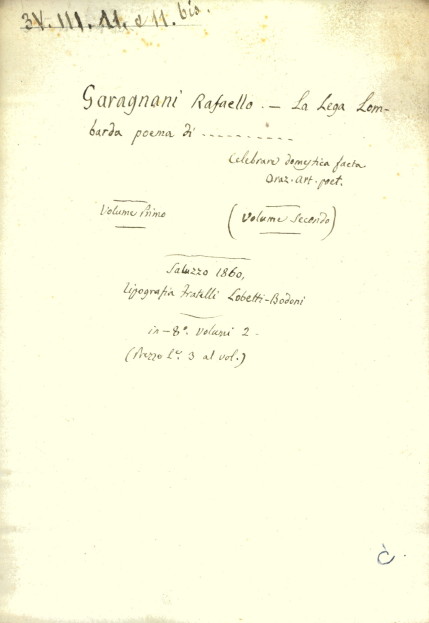 3V. III. 11. e 11. bis.
Garagnani Rafaello. — La Lega Lom-
barda poema di ..........
Celebrare domestica facta
Oraz. Art. poet.
Volume Primo (Volume Secondo)
Saluzzo 1860,
Tipografia Fratelli Lobetti-Bodoni
in-8°. volumi 2.
(Prezzo L.e 3 al vol.)
c̀.